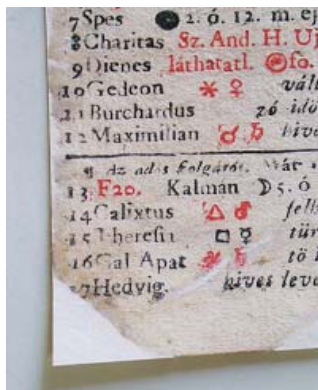 7 Spes ● 2. ó. 12. m. ej
8 Charitas Sz. And. H. Uj
9 Dienes láthatatl. fő.
10 Gedeon ⚹ ♀ vált
11 Burchardus zó idő
12 Maximilian ☌ ♄ hives
¶ Az adós szolgáról.
13 F20. Kalmán ☽ 5. ó
14 Calixtus △ ♂ felh
15 Theresia □ ☿
16 Gal Apat ⚹ ♄
17 Hedvig. hives leve